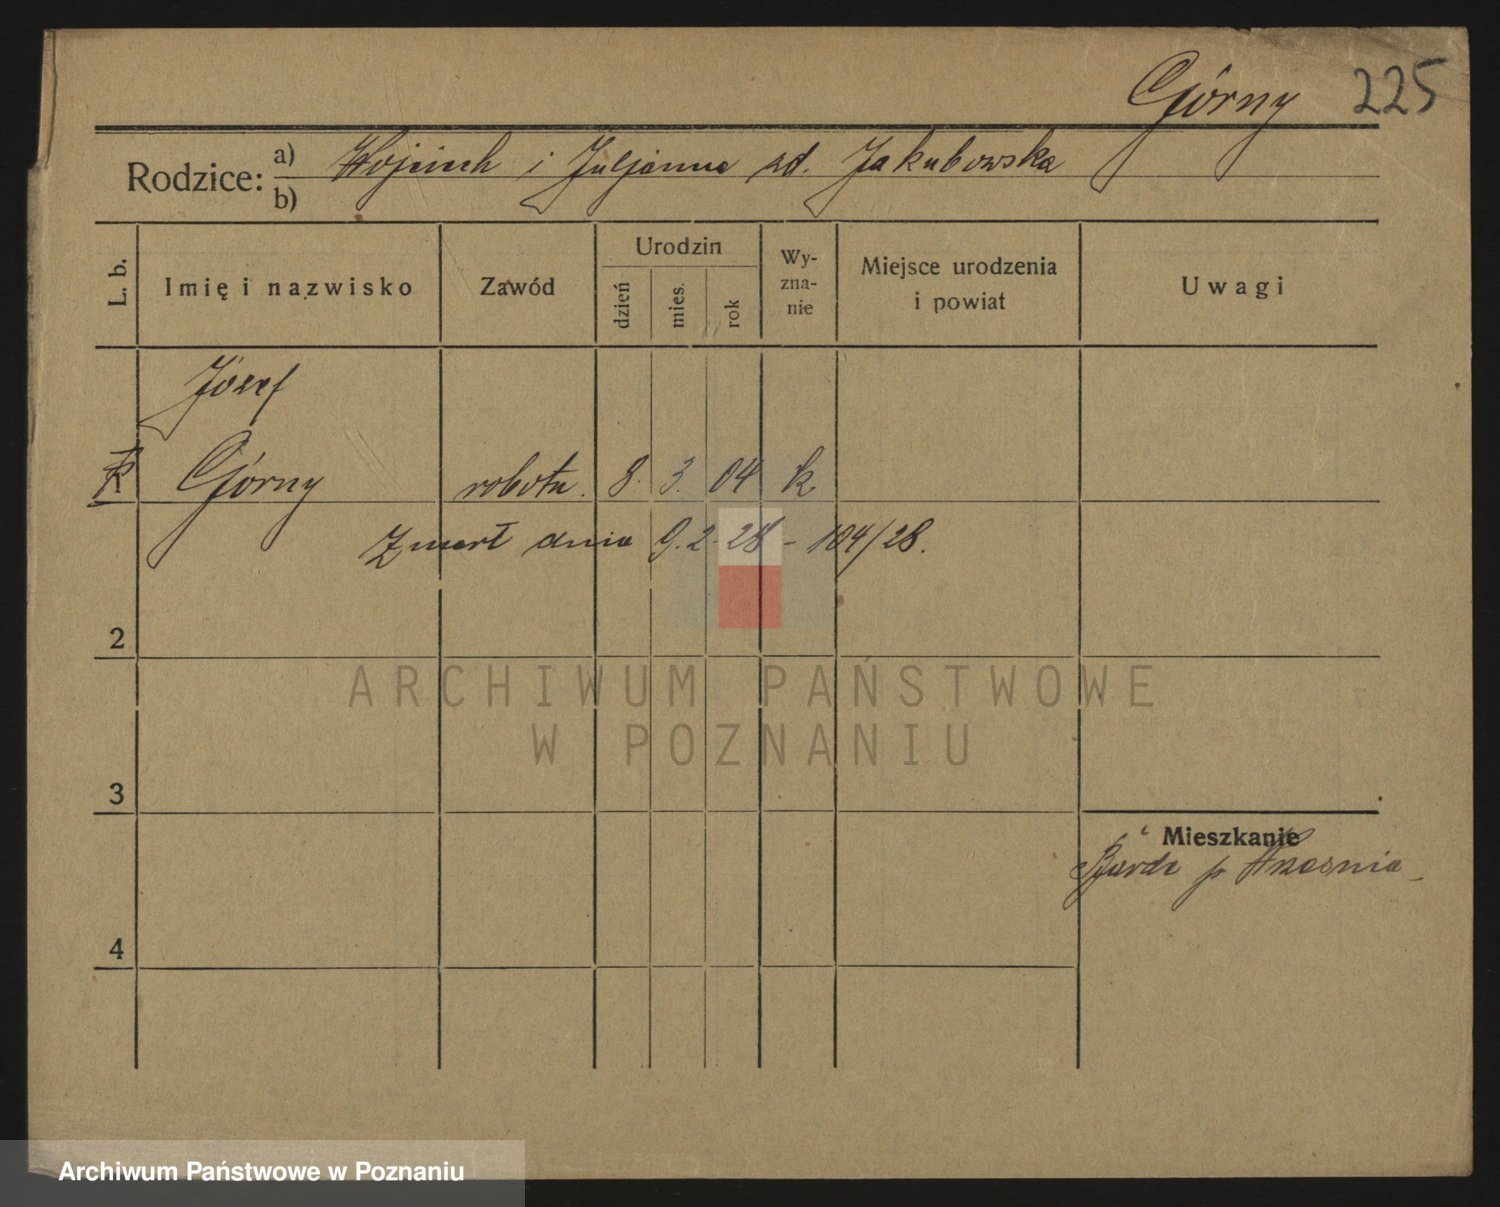 Górny 225
Rodzice: a) Wojciech i Juljanna zd. Jakubowska
b)
L. b.
Imię i nazwisko
Zawód
Urodzin
dzień
mies.
rok
Wy-
zna-
nie
Miejsce urodzenia
i powiat
Uwagi
Józef
1 Górny robotn. 8. 3. 04 k
Zmarł dnia 9.2.28 - 104/28.
2
ARCHIWUM PAŃSTWOWE
W POZNANIU
3
Mieszkanie
Bardo p Września
4
Archiwum Państwowe w Poznaniu